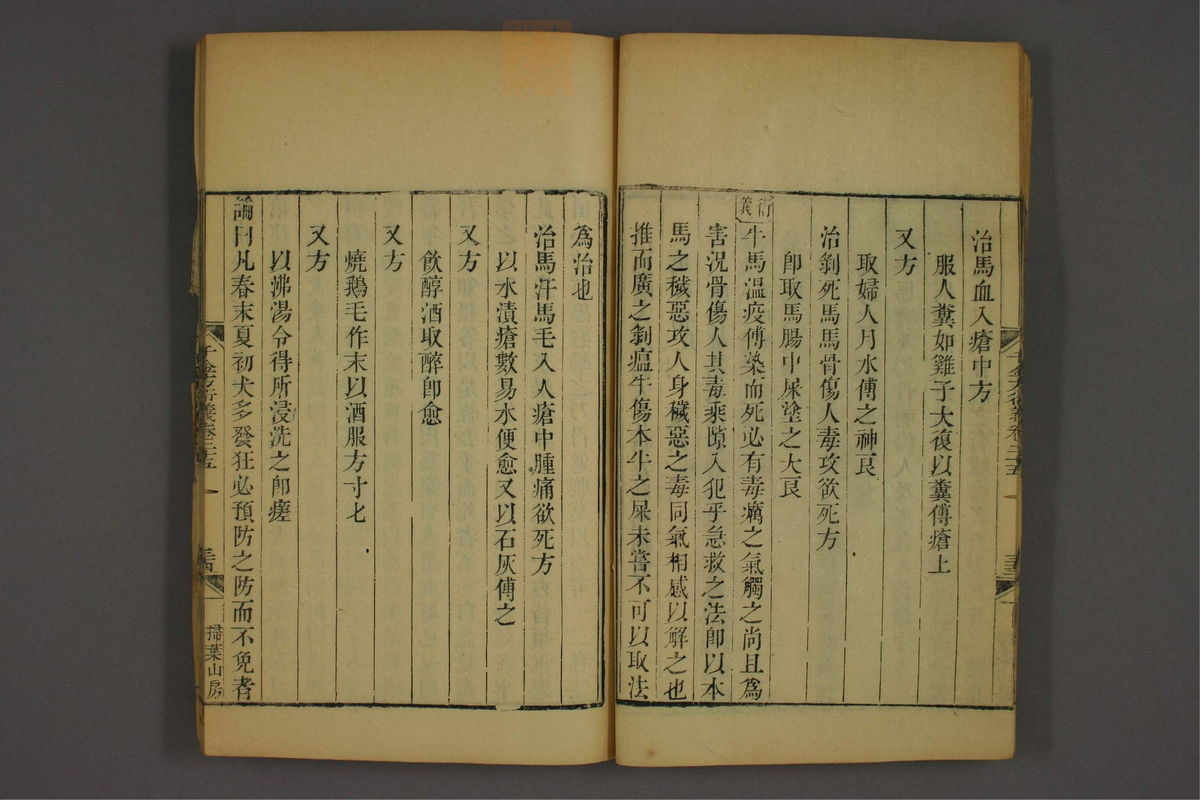 治馬血入瘡中方
服人糞如雞子大復以糞傅瘡上
又方
取婦人月水傅之神良
治剝死馬馬骨傷人毒攻欲死方
卽取馬腸中屎塗之大良
衍義
牛馬溫疫傅染而死必有毒癘之氣觸之尚且爲
害况骨傷人其毒乘隙入犯乎急救之法卽以本
馬之穢惡攻人身穢惡之毒同氣相感以解之也
推而廣之剝瘟牛傷本牛之屎未嘗不可以取法
千金方衍義卷二十五
三十三
爲治也
治馬汗馬毛入人瘡中腫痛欲死方
以水漬瘡數易水便愈又以石灰傅之
又方
飲醇酒取醉卽愈
又方
燒鷄毛作末以酒服方寸匕
又方
以沸湯令得所浸洗之卽瘥
論曰凡春末夏初犬多發狂必預防之防而不免者
千金方衍義卷二十五
三十四
掃葉山房